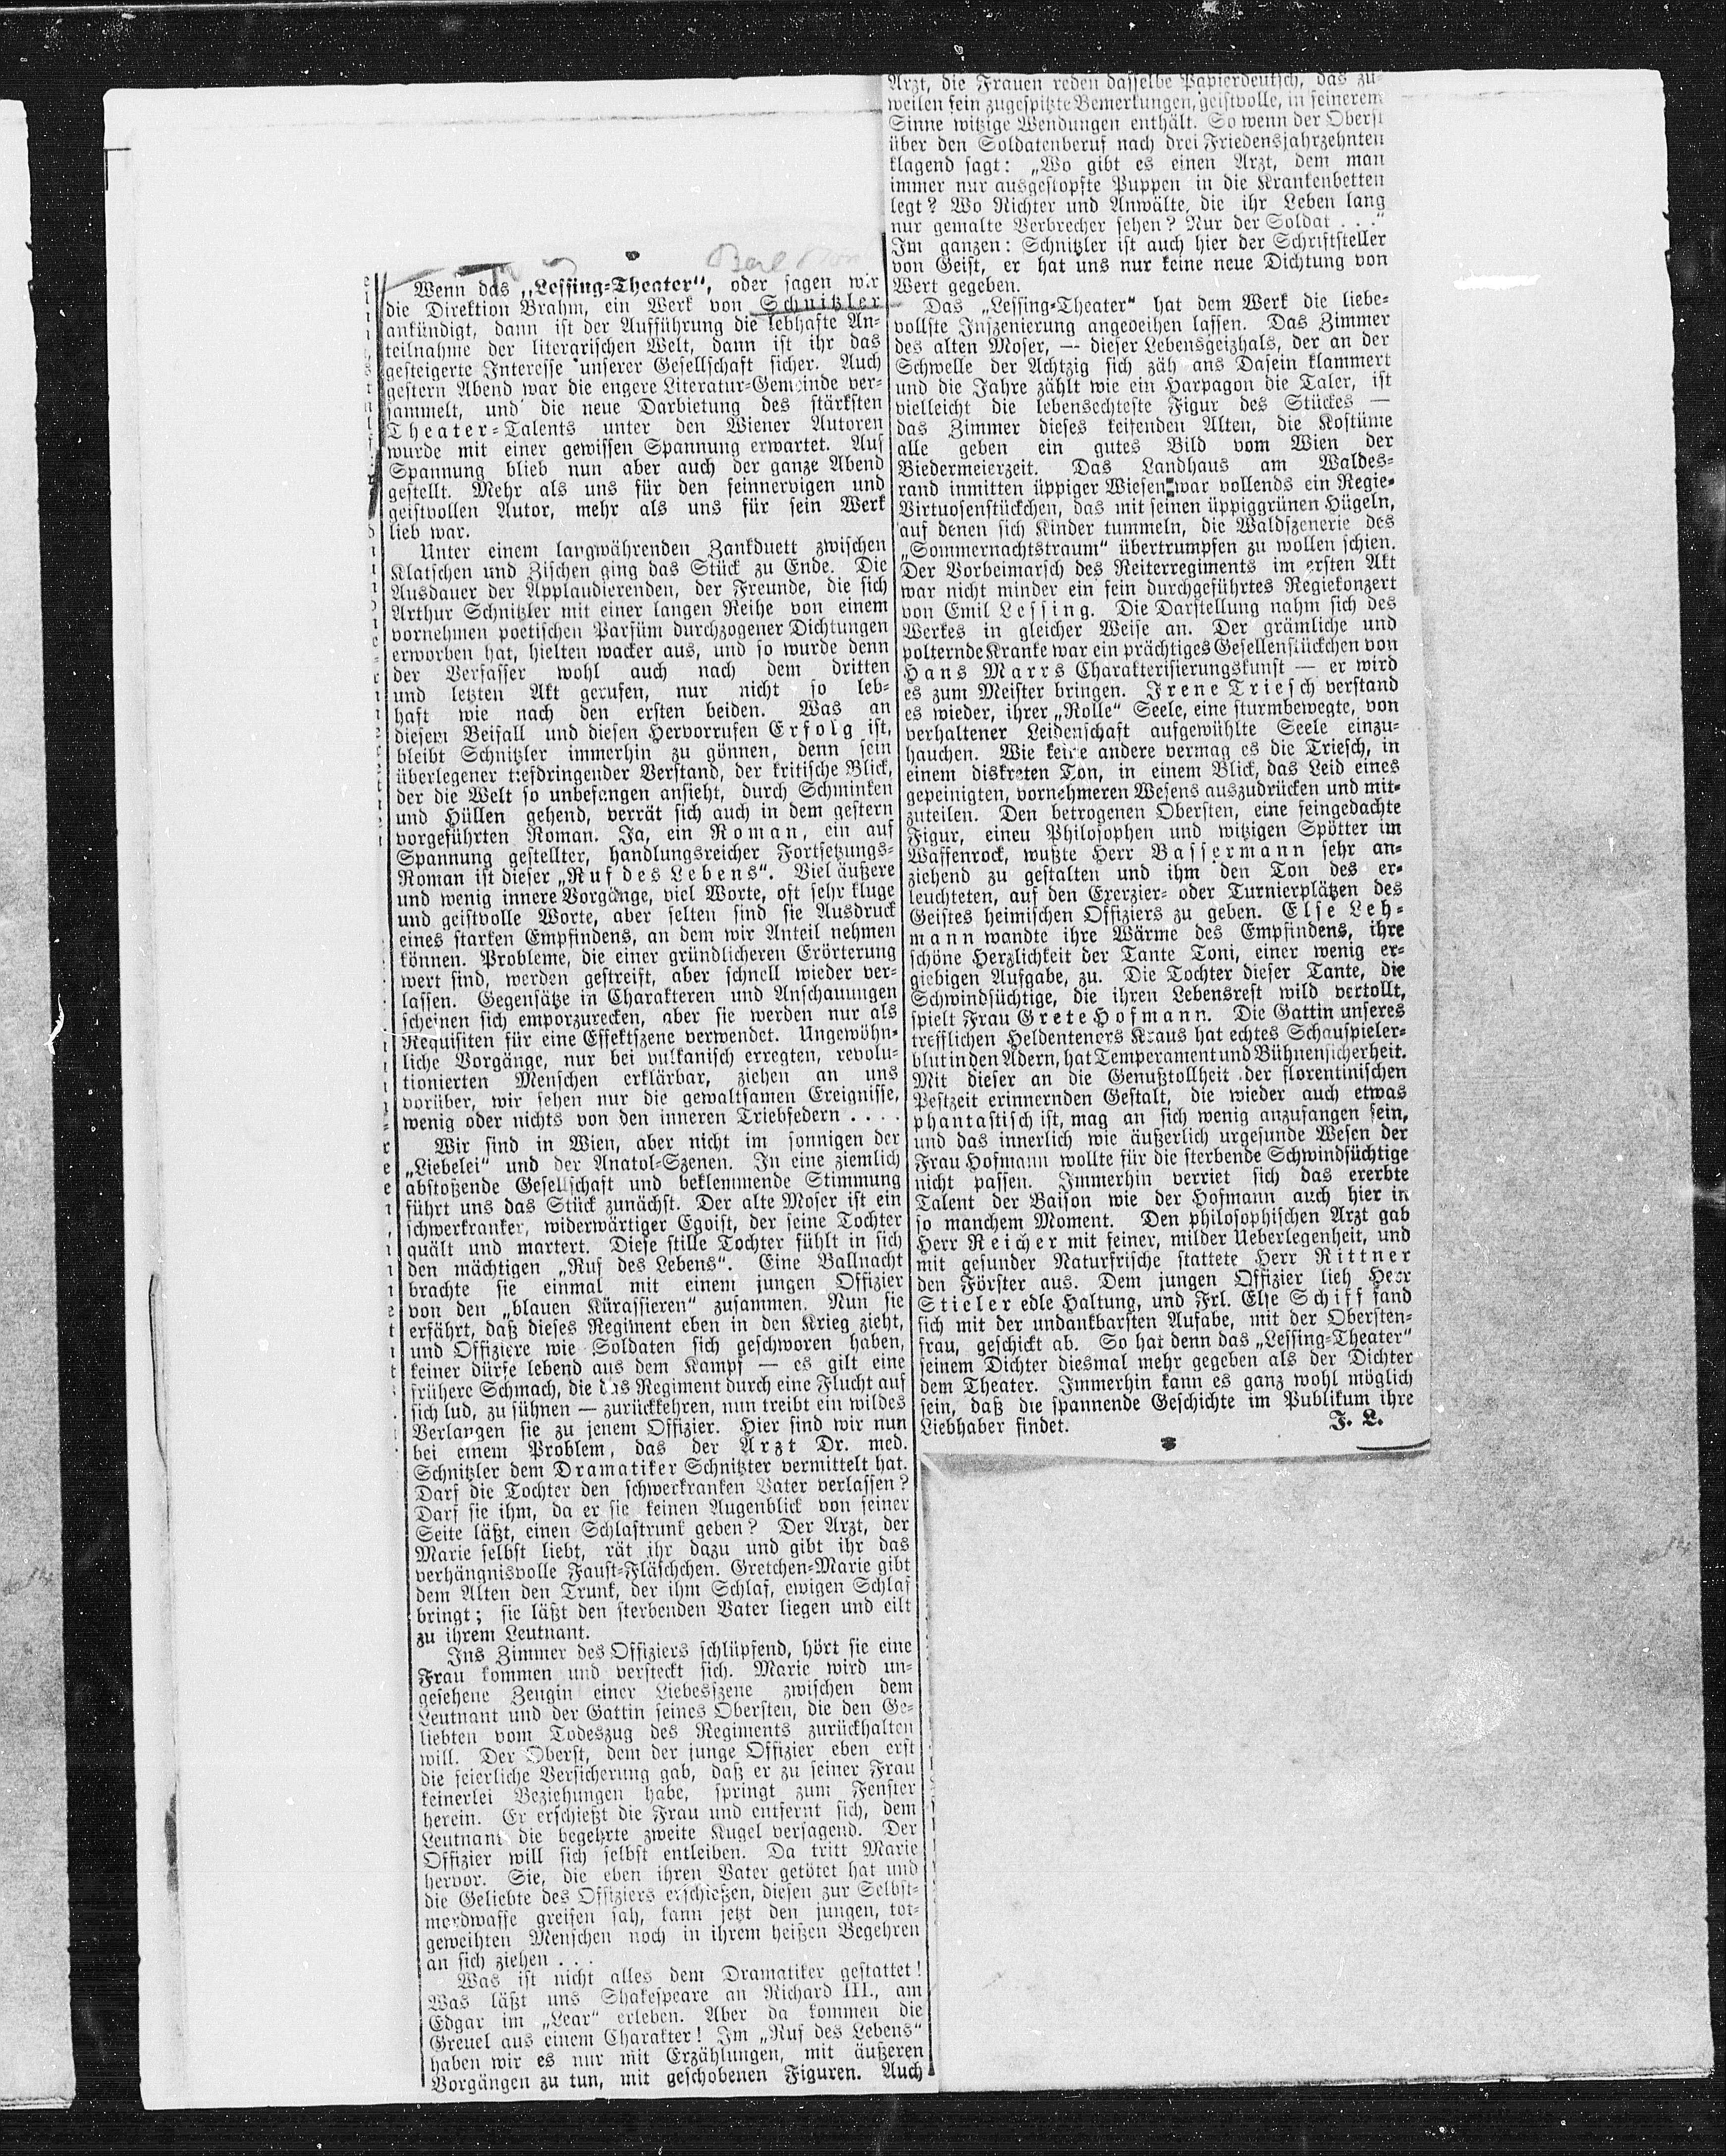 Wenn das „Lessing-Theater“, oder sagen wir
die Direktion Brahm, ein Werk von Schnitzler
ankündigt, dann ist der Aufführung die lebhafte An-
teilnahme der literarischen Welt, dann ist ihr das
gesteigerte Interesse unserer Gesellschaft sicher. Auch
gestern Abend war die engere Literatur-Gemeinde ver-
sammelt, und die neue Darbietung des stärksten
Theater-Talents unter den Wiener Autoren
wurde mit einer gewissen Spannung erwartet. Auf
Spannung blieb nun aber auch der ganze Abend
gestellt. Mehr als uns für den feinnervigen und
geistvollen Autor, mehr als uns für sein Werk
lieb war.
Unter einem langwährenden Zankduett zwischen
Klatschen und Zischen ging das Stück zu Ende. Die
Ausdauer der Applaudierenden, der Freunde, die sich
Arthur Schnitzler mit einer langen Reihe von einem
vornehmen poetischen Parfüm durchzogener Dichtungen
erworben hat, hielten wacker aus, und so wurde denn
der Verfasser wohl auch nach dem dritten
und letzten Akt gerufen, nur nicht so leb-
haft wie nach den ersten beiden. Was an
diesem Beifall und diesen Hervorrufen Erfolg ist,
bleibt Schnitzler immerhin zu gönnen, denn sein
überlegener tiefdringender Verstand, der kritische Blick,
der die Welt so unbefangen ansieht, durch Schminken
und Hüllen gehend, verrät sich auch in dem gestern
vorgeführten Roman. Ja, ein Roman, ein auf
Spannung gestellter, handlungsreicher Fortsetzungs-
Roman ist dieser „Ruf des Lebens“. Viel äußere
und wenig innere Vorgänge, viel Worte, oft sehr kluge
und geistvolle Worte, aber selten sind sie Ausdruck
eines starken Empfindens, an dem wir Anteil nehmen
können. Probleme, die einer gründlicheren Erörterung
wert sind, werden gestreift, aber schnell wieder ver-
lassen. Gegensätze in Charakteren und Anschauungen
scheinen sich emporzurecken, aber sie werden nur als
Requisiten für eine Effektszene verwendet. Ungewöhn-
liche Vorgänge, nur bei vulkanisch erregten, revolu-
tionierten Menschen erklärbar, ziehen an uns
vorüber, wir sehen nur die gewaltsamen Ereignisse,
wenig oder nichts von den inneren Triebfedern . . . .
Wir sind in Wien, aber nicht im sonnigen der
„Liebelei“ und der Anatol-Szenen. In eine ziemlich
abstoßende Gesellschaft und beklemmende Stimmung
führt uns das Stück zunächst. Der alte Moser ist ein
schwerkranker, widerwärtiger Egoist, der seine Tochter
quält und martert. Diese stille Tochter fühlt in sich
den mächtigen „Ruf des Lebens“. Eine Ballnacht
brachte sie einmal mit einem jungen Offizier
von den „blauen Kürassieren“ zusammen. Nun sie
erfährt, daß dieses Regiment eben in den Krieg zieht,
und Offiziere wie Soldaten sich geschworen haben,
keiner dürfe lebend aus dem Kampf — es gilt eine
frühere Schmach, die das Regiment durch eine Flucht auf
sich lud, zu sühnen — zurückkehren, nun treibt ein wildes
Verlangen sie zu jenem Offizier. Hier sind wir nun
bei einem Problem, das der Arzt Dr. med.
Schnitzler dem Dramatiker Schnitzter vermittelt hat.
Darf die Tochter den schwerkranken Vater verlassen?
Darf sie ihm, da er sie keinen Augenblick von seiner
Seite läßt, einen Schlaftrunk geben? Der Arzt, der
Marie selbst liebt, rät ihr dazu und gibt ihr das
verhängnisvolle Faust-Fläschchen. Gretchen-Marie gibt
dem Alten den Trunk, der ihm Schlaf, ewigen Schlaf
bringt; sie läßt den sterbenden Vater liegen und eilt
zu ihrem Leutnant.
Ins Zimmer des Offiziers schlüpfend, hört sie eine
Frau kommen und versteckt sich. Marie wird un-
gesehene Zeugin einer Liebesszene zwischen dem
Leutnant und der Gattin seines Obersten, die den Ge-
liebten vom Todeszug des Regiments zurückhalten
will. Der Oberst, dem der junge Offizier eben erst
die feierliche Versicherung gab, daß er zu seiner Frau
keinerlei Beziehungen habe, springt zum Fenster
herein. Er erschießt die Frau und entfernt sich, dem
Leutnant die begehrte zweite Kugel versagend. Der
Offizier will sich selbst entleiben. Da tritt Marie
hervor. Sie, die eben ihren Vater getötet hat und
die Geliebte des Offiziers erschießen, diesen zur Selbst-
mordwaffe greifen sah, kann jetzt den jungen, tot-
geweihten Menschen noch in ihrem heißen Begehren
an sich ziehen . . .
Was ist nicht alles dem Dramatiker gestattet!
Was läßt uns Shakespeare an Richard III., am
Edgar im „Lear“ erleben. Aber da kommen die
Greuel aus einem Charakter! Im „Ruf des Lebens“
haben wir es nur mit Erzählungen, mit äußeren
Vorgängen zu tun, mit geschobenen Figuren. Auch
Arzt, die Frauen reden dasselbe Papierdeutsch, das zu-
weilen fein zugespitzte Bemerkungen, geistvolle, in feinerem
Sinne witzige Wendungen enthält. So wenn der Oberst
über den Soldatenberuf nach drei Friedensjahrzehnten
klagend sagt: „Wo gibt es einen Arzt, dem man
immer nur ausgestopfte Puppen in die Krankenbetten
legt? Wo Richter und Anwälte, die ihr Leben lang
nur gemalte Verbrecher sehen? Nur der Soldat . . .“
Im ganzen: Schnitzler ist auch hier der Schriftsteller
von Geist, er hat uns nur keine neue Dichtung von
Wert gegeben.
Das „Lessing-Theater“ hat dem Werk die liebe-
vollste Inszenierung angedeihen lassen. Das Zimmer
des alten Moser, — dieser Lebensgeizhals, der an der
Schwelle der Achtzig sich zäh ans Dasein klammert
und die Jahre zählt wie ein Harpagon die Taler, ist
vielleicht die lebensechteste Figur des Stückes —
das Zimmer dieses keifenden Alten, die Kostüme
alle geben ein gutes Bild vom Wien der
Biedermeierzeit. Das Landhaus am Waldes-
rand inmitten üppiger Wiesen war vollends ein Regie-
Virtuosenstückchen, das mit seinen üppiggrünen Hügeln,
auf denen sich Kinder tummeln, die Waldszenerie des
„Sommernachtstraum“ übertrumpfen zu wollen schien.
Der Vorbeimarsch des Reiterregiments im ersten Akt
war nicht minder ein fein durchgeführtes Regiekonzert
von Emil Lessing. Die Darstellung nahm sich des
Werkes in gleicher Weise an. Der grämliche und
polternde Kranke war ein prächtiges Gesellenstückchen von
Hans Marrs Charakterisierungskunst — er wird
es zum Meister bringen. Irene Triesch verstand
es wieder, ihrer „Rolle“ Seele, eine sturmbewegte, von
verhaltener Leidenschaft aufgewühlte Seele einzu-
hauchen. Wie keine andere vermag es die Triesch, in
einem diskreten Ton, in einem Blick, das Leid eines
gepeinigten, vornehmeren Wesens auszudrücken und mit-
zuteilen. Den betrogenen Obersten, eine feingedachte
Figur, einen Philosophen und witzigen Spötter im
Waffenrock, wußte Herr Bassermann sehr an-
ziehend zu gestalten und ihm den Ton des er-
leuchteten, auf den Exerzier- oder Turnierplätzen des
Geistes heimischen Offiziers zu geben. Else Leh-
mann wandte ihre Wärme des Empfindens, ihre
schöne Herzlichkeit der Tante Toni, einer wenig er-
giebigen Aufgabe, zu. Die Tochter dieser Tante, die
Schwindsüchtige, die ihren Lebensrest wild vertollt,
spielt Frau Grete Hofmann. Die Gattin unseres
trefflichen Heldentenors Kraus hat echtes Schauspieler-
blut in den Adern, hat Temperament und Bühnensicherheit.
Mit dieser an die Genußtollheit der florentinischen
Pestzeit erinnernden Gestalt, die wieder auch etwas
phantastisch ist, mag an sich wenig anzufangen sein,
und das innerlich wie äußerlich urgesunde Wesen der
Frau Hofmann wollte für die sterbende Schwindsüchtige
nicht passen. Immerhin verriet sich das ererbte
Talent der Baison wie der Hofmann auch hier in
so manchem Moment. Den philosophischen Arzt gab
Herr Reicher mit feiner, milder Ueberlegenheit, und
mit gesunder Naturfrische stattete Herr Rittner
den Förster aus. Dem jungen Offizier lieh Herr
Stieler edle Haltung, und Frl. Else Schiff fand
sich mit der undankbarsten Aufabe, mit der Obersten-
frau, geschickt ab. So hat denn das „Lessing-Theater“
seinem Dichter diesmal mehr gegeben als der Dichter
dem Theater. Immerhin kann es ganz wohl möglich
sein, daß die spannende Geschichte im Publikum ihre
Liebhaber findet. J. L.